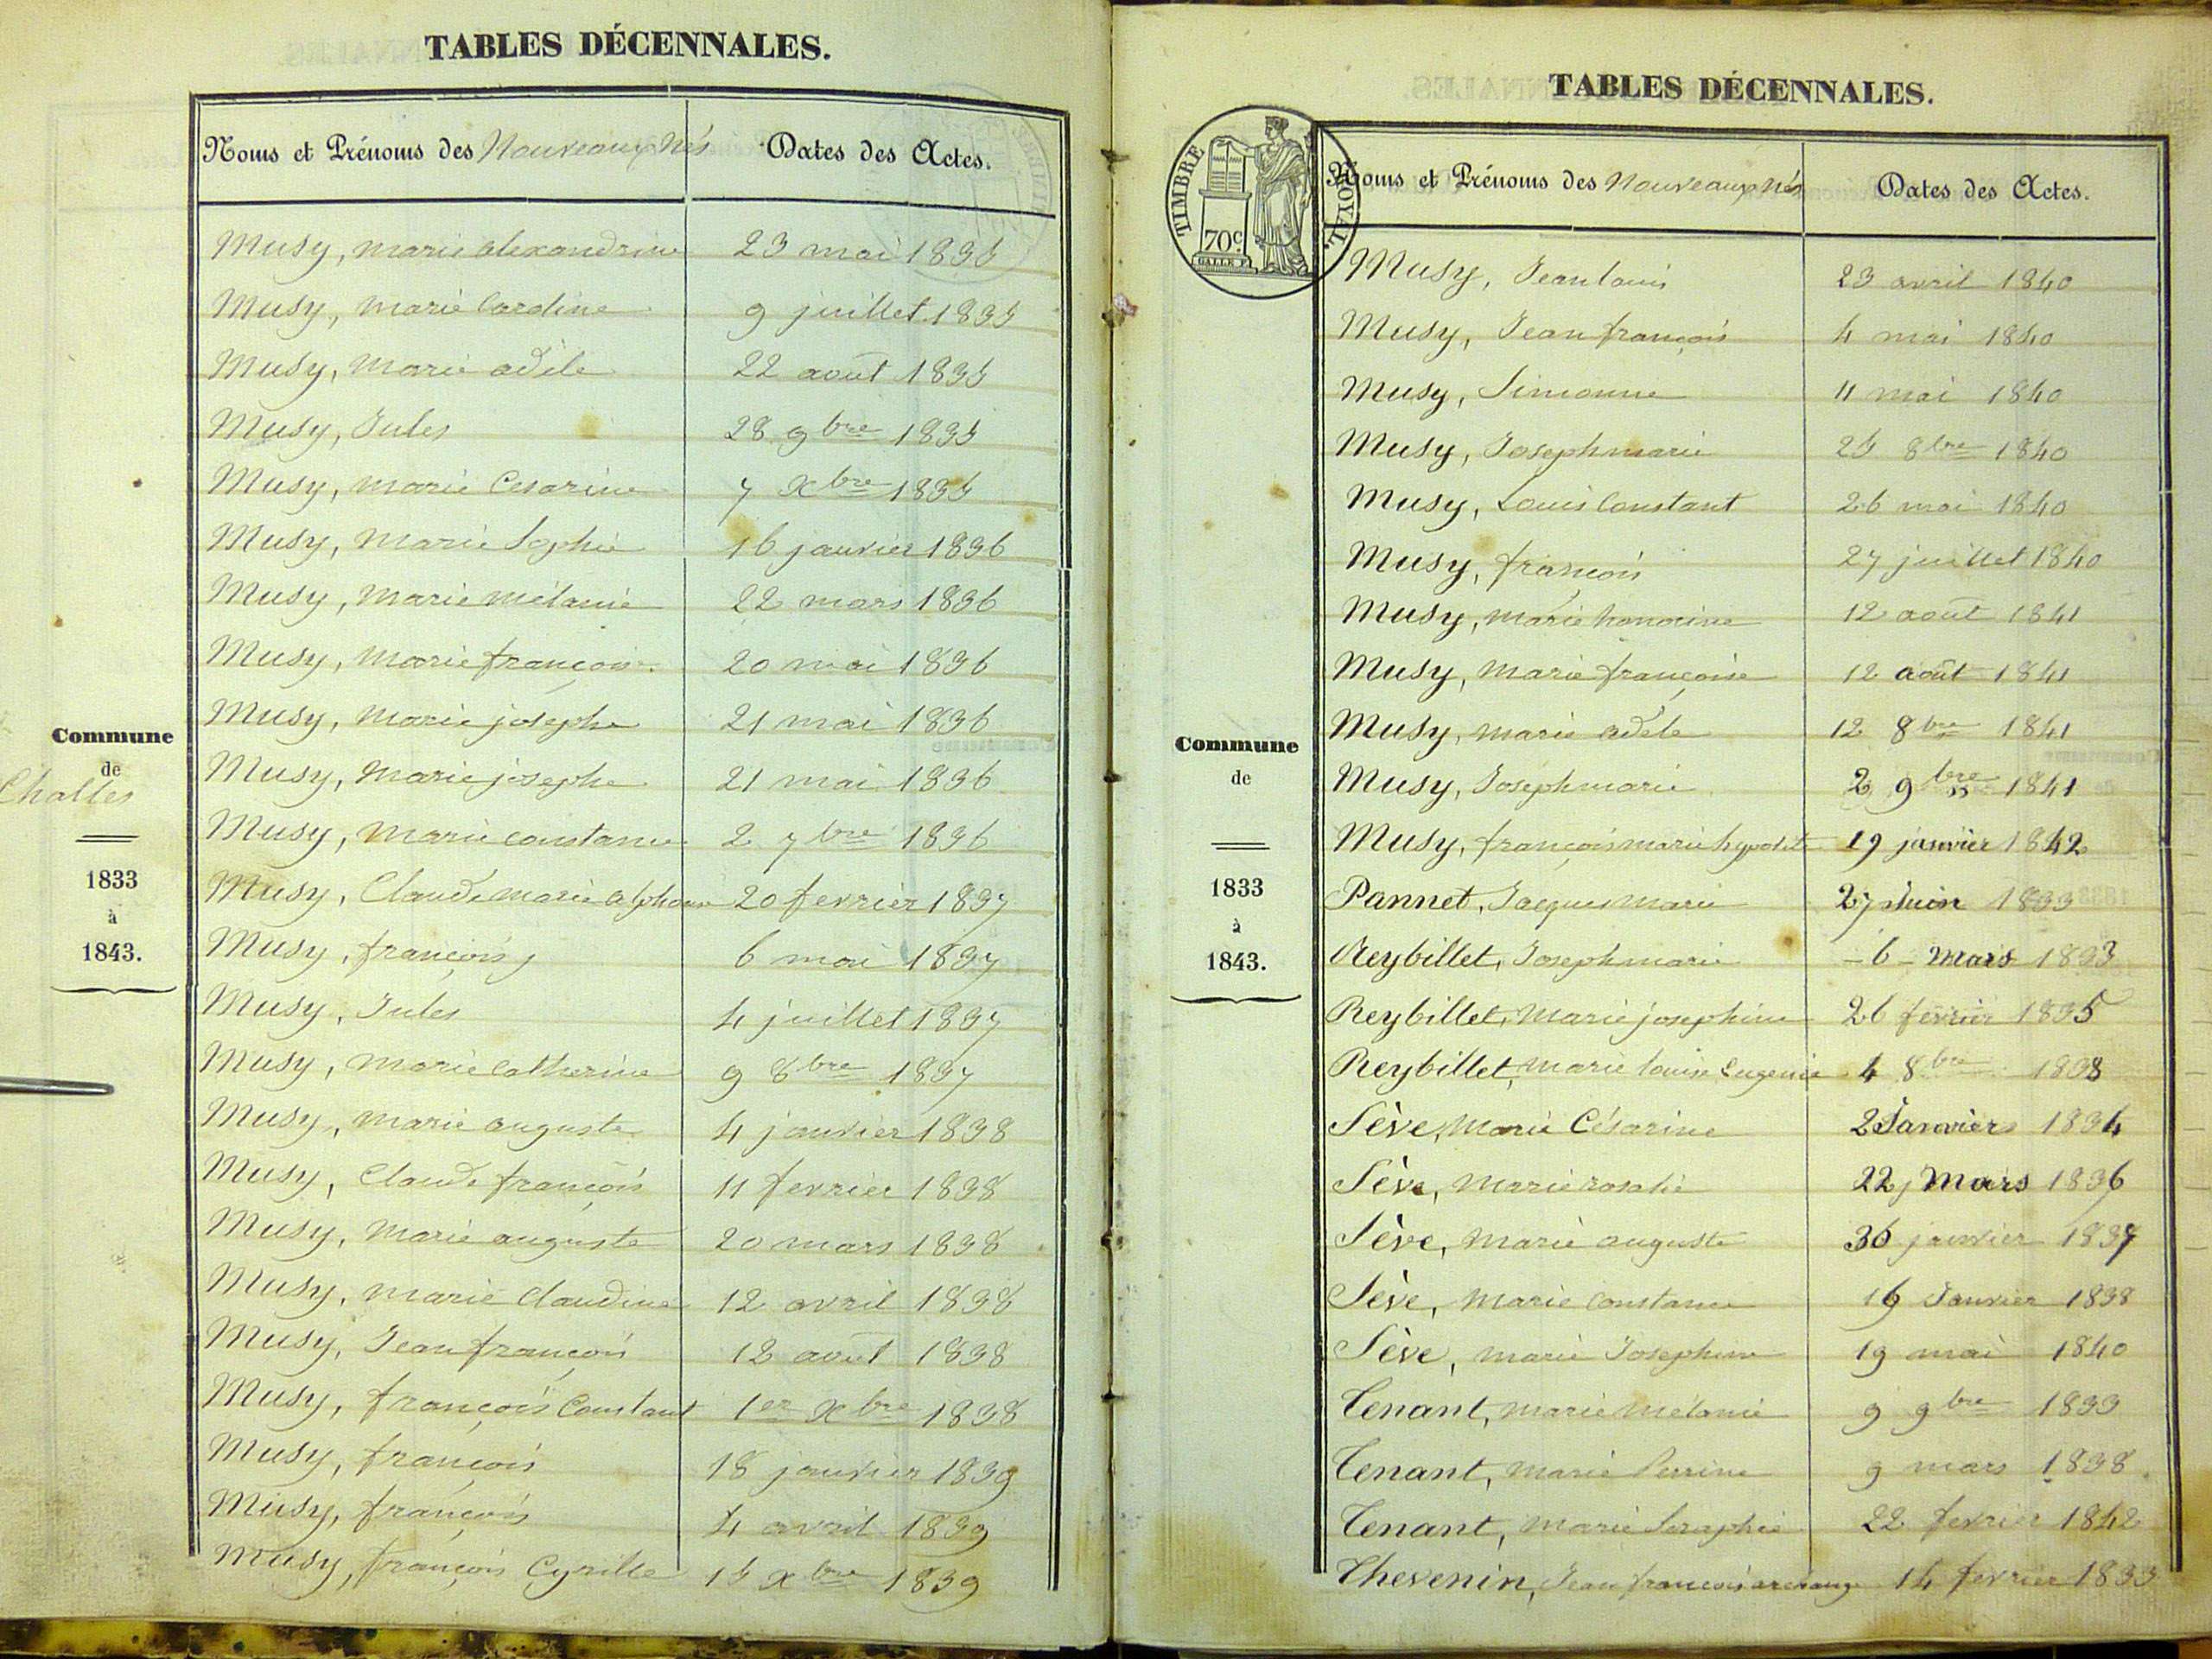 TABLES DÉCENNALES.
Noms et Prénoms des Nouveaux Nés Dates des Actes.
Musy, marie alexandrine 23 mai 1835
Musy, marie Caroline 9 juillet 1835
Musy, marie adèle 22 août 1835
Musy, Jules 28 9bre 1835
Musy, marie Cesarine 7 Xbre 1835
Musy, marie Sophie 16 janvier 1836
Musy, marie mélanie 22 mars 1836
Musy, marie françois 20 mai 1836
Musy, marie josephe 21 mai 1836
Musy, marie josephe 21 mai 1836
Musy, marie constance 2 7bre 1836
Musy, Claude marie alphonse 20 fevrier 1837
Musy, françois 6 mai 1837
Musy, Jules 4 juillet 1837
Musy, marie Catherine 9 8bre 1837
Musy, marie auguste 4 janvier 1838
Musy, Claude françois 11 fevrier 1838
Musy, marie auguste 20 mars 1838
Musy, marie Claudine 12 avril 1838
Musy, Jean françois 12 août 1838
Musy, françois Constant 1er Xbre 1838
Musy, françois 18 janvier 1839
Musy, françois 4 avril 1839
Musy, françois Cyrille 15 Xbre 1839
Commune
de
Challes
1833
à
1843.
TABLES DÉCENNALES.
TIMBRE ROYAL.
70c.
GALLE F.
Noms et Prénoms des Nouveaux Nés Dates des Actes.
Musy, Jean louis 23 avril 1840
Musy, Jean françois 4 mai 1840
Musy, Simonne 11 mai 1840
Musy, Joseph marie 25 8bre 1840
Musy, Louis Constant 26 mai 1840
Musy, françois 27 juillet 1840
Musy, marie honorine 12 août 1841
Musy, marie françoise 12 août 1841
Musy, marie adele 12 8bre 1841
Musy, Joseph marie 2 9bre 1841
Musy, françois marie hypolite 19 janvier 1842
Pannet, Jacques marie 27 Juin 1833
Reybillet, Joseph marie 6 Mars 1833
Reybillet, Marie josephine 26 février 1835
Reybillet, marie louise Eugenie 4 8bre 1838
Sève, Marie Césarine 2 Janvier 1834
Sève, Marie rosalie 22 Mars 1836
Sève, Marie auguste 30 janvier 1837
Sève, Marie Constance 19 Janvier 1838
Sève, marie Josephine 19 mai 1840
Tenant, marie mélanie 9 9bre 1833
Tenant, Marie Perrine 9 mars 1838
Tenant, Marie Seraphie 22 fevrier 1842
Thevenin, Jean françois archange 14 fevrier 1833
Commune
de
1833
à
1843.